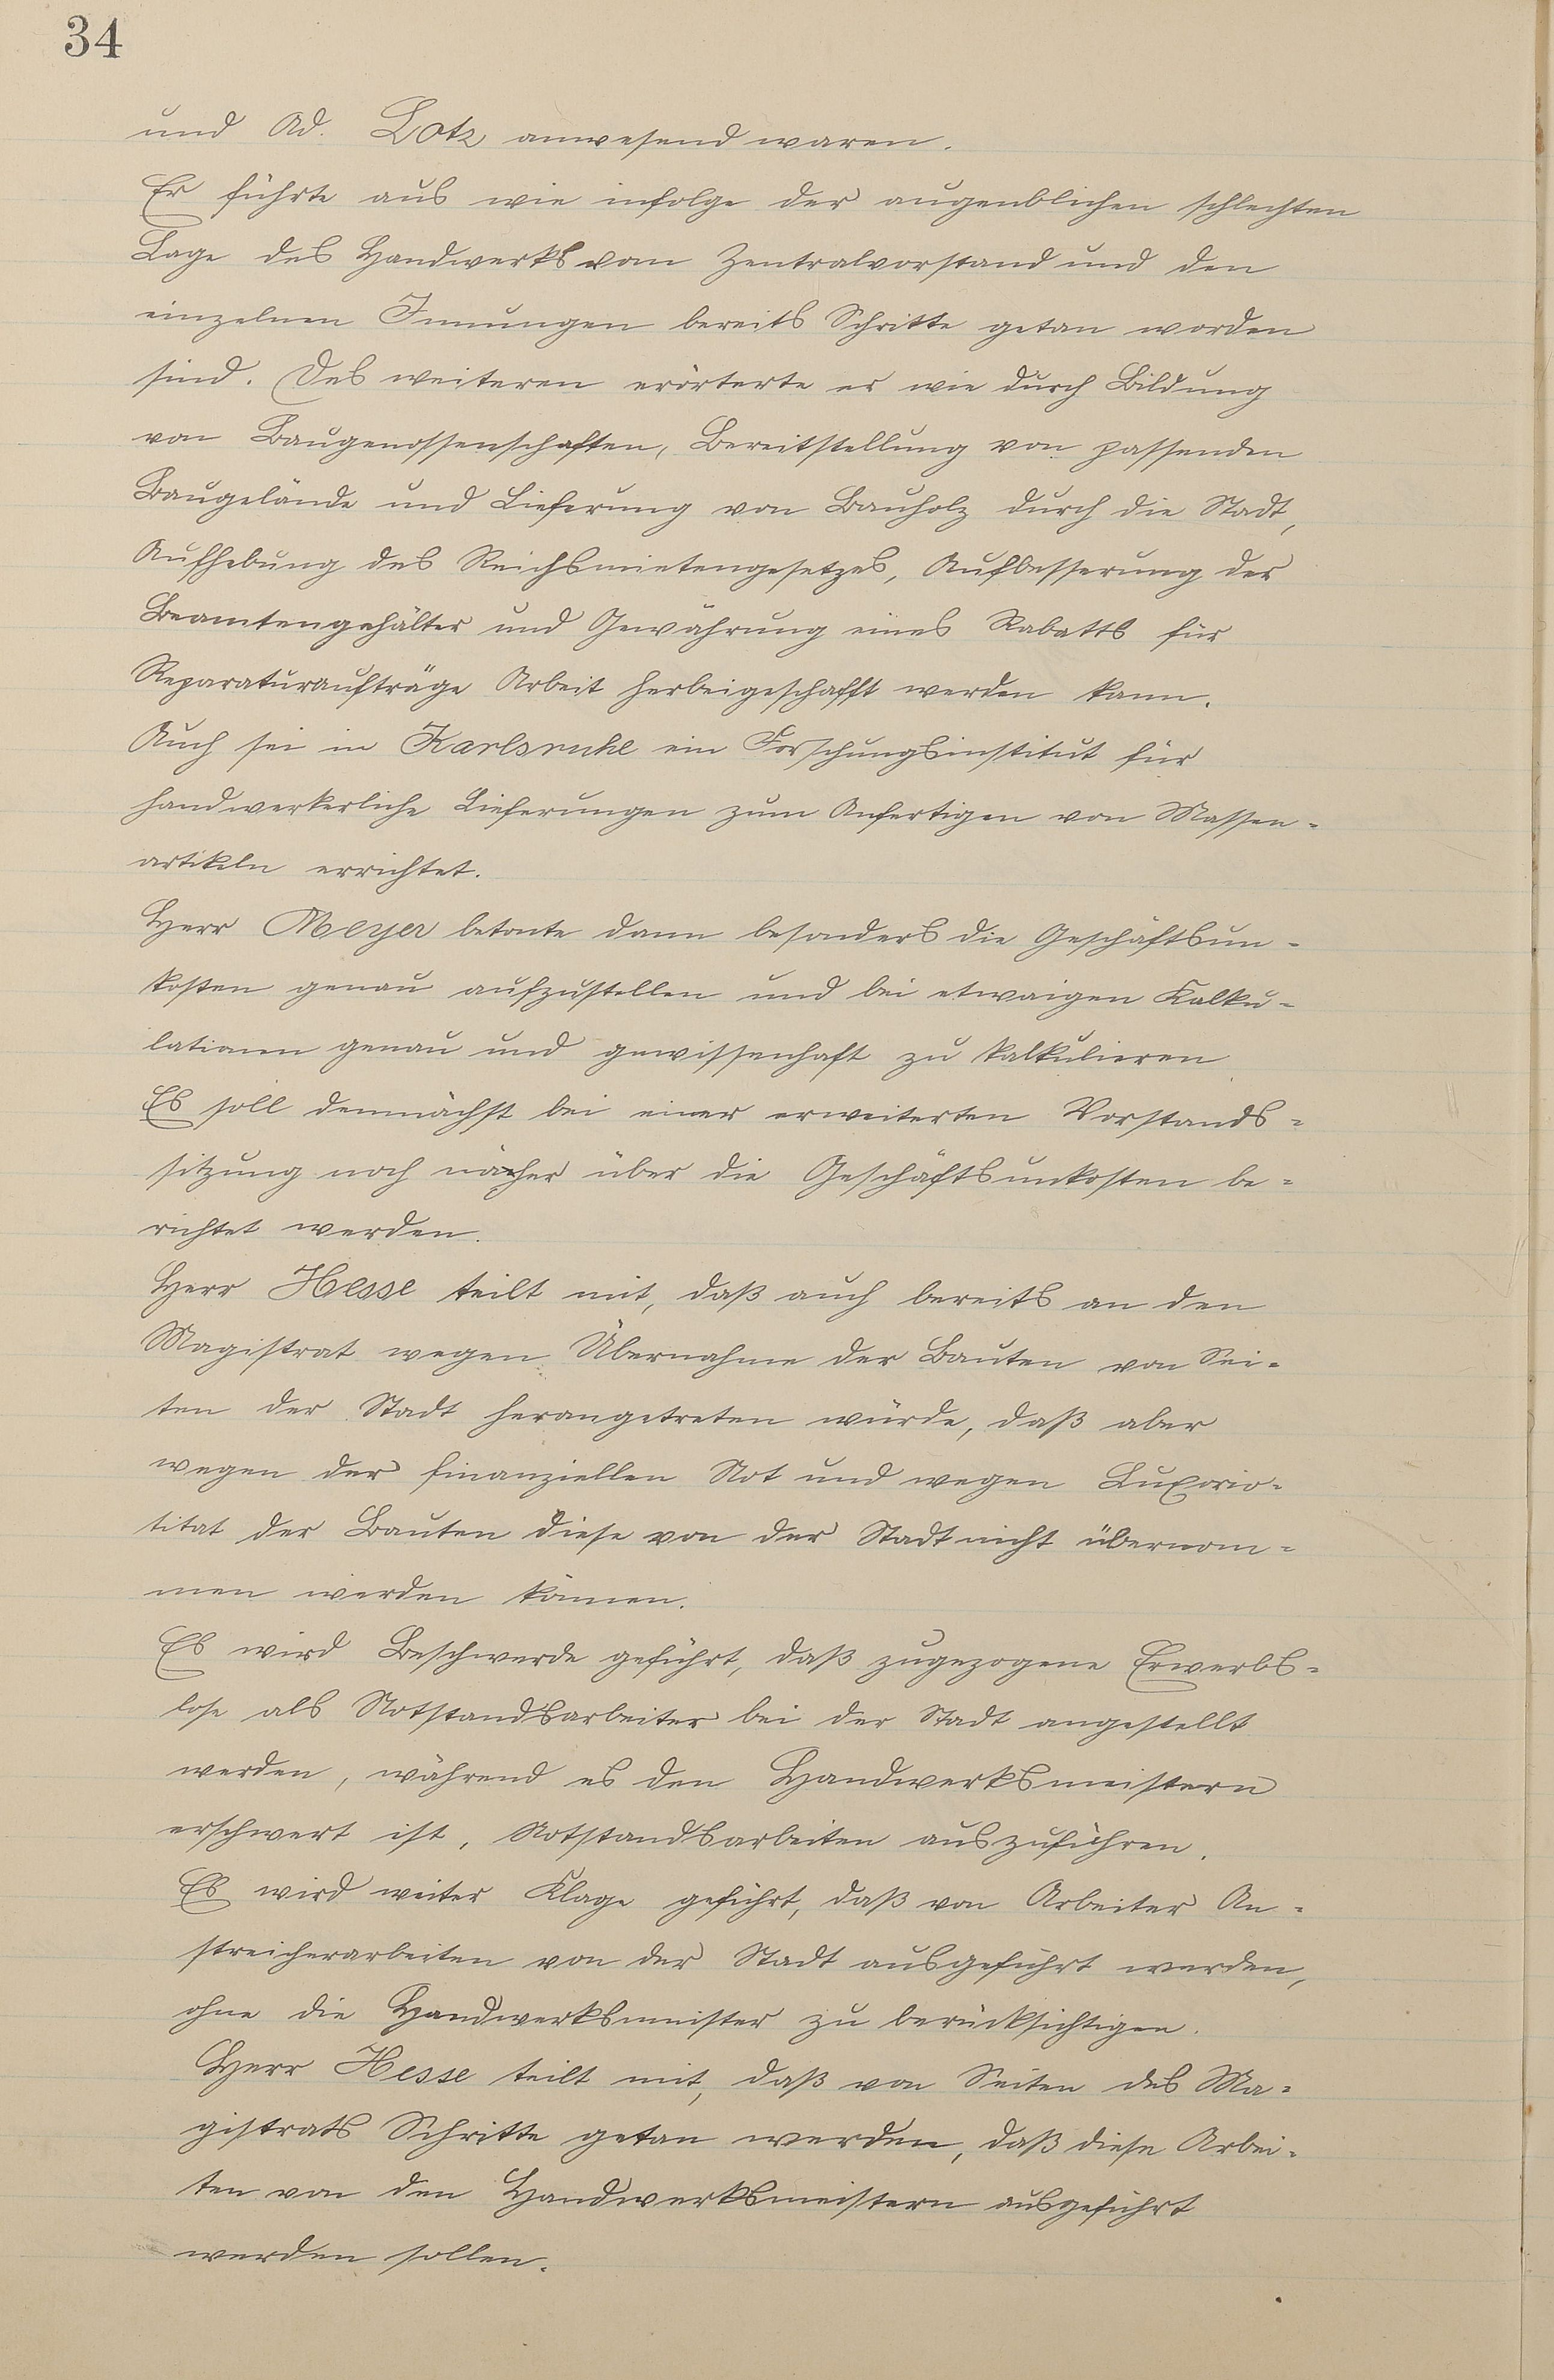 34
und Ad. Lotz anwesend waren.
Er führte aus wie infolge der augenblichen schlechten
Lage des Handwerks vom Zentralvorstand und den
einzelnen Innungen bereits Schritte getan worden
sind. Des weiteren erörterte er wie durch Bildung
von Baugenossenschaften, Bereitstellung von passenden
Baugelände und Lieferung von Bauholz durch die Stadt,
Aufhebung des Reichsmietengesetzes, Aufbesserung der
Beamtengehälter und Gewährung eines Rabatts für
Reparaturaufträge Arbeit herbeigeschafft werden kann.
Auch sei in Karlsruhe ein Forschungsinstitut für
handwerkerliche Lieferungen zum Anfertigen von Massen-
artikeln errichtet.
Herr Meyer betonte dann besonders die Geschäftsun-
kosten genau aufzustellen und bei etwaigen Kalku-
lationen genau und gewissenhaft zu kalkulieren
Es soll demnächst bei einer erweiterten Vorstands-
sitzung noch näher über die Geschäftsunkosten be-
richtet werden.
Herr Hesse teilt mit, daß auch bereits an den
Magistrat wegen Übernahme der Bauten von Sei-
ten der Stadt herangetreten würde, daß aber
wegen der finanziellen Not und wegen Luxorio-
titat der Bauten diese von der Stadt nicht übernom-
men werden können.
Es wird Beschwerde geführt, daß zugezogene Erwerbs-
lose als Notstandsarbeiter bei der Stadt angestellt
werden, während es den Handwerksmeistern
erschwert ist, Notstandsarbeiten auszuführen.
Es wird weiter Klage geführt, daß von Arbeiter An-
streicherarbeiten von der Stadt ausgeführt werden,
ohne die Handwerksmeister zu berücksichtigen.
Herr Hesse teilt mit, daß von Seiten des Ma-
gistrats Schritte getan werden, daß diese Arbei-
ten von den Handwerksmeistern ausgeführt
werden sollen.